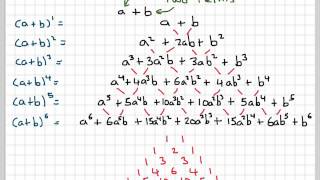 a + b
(a+b)¹ = a + b
(a+b)² = a² + 2ab + b²
(a+b)³ = a³ + 3a²b + 3ab² + b³
(a+b)⁴ = a⁴ + 4a³b + 6a²b² + 4ab³ + b⁴
(a+b)⁵ = a⁵ + 5a⁴b + 10a³b² + 10a²b³ + 5ab⁴ + b⁵
(a+b)⁶ = a⁶ + 6a⁵b + 15a⁴b² + 20a³b³ + 15a²b⁴ + 6ab⁵ + b⁶
1
1 1
1 2 1
1 3 3 1